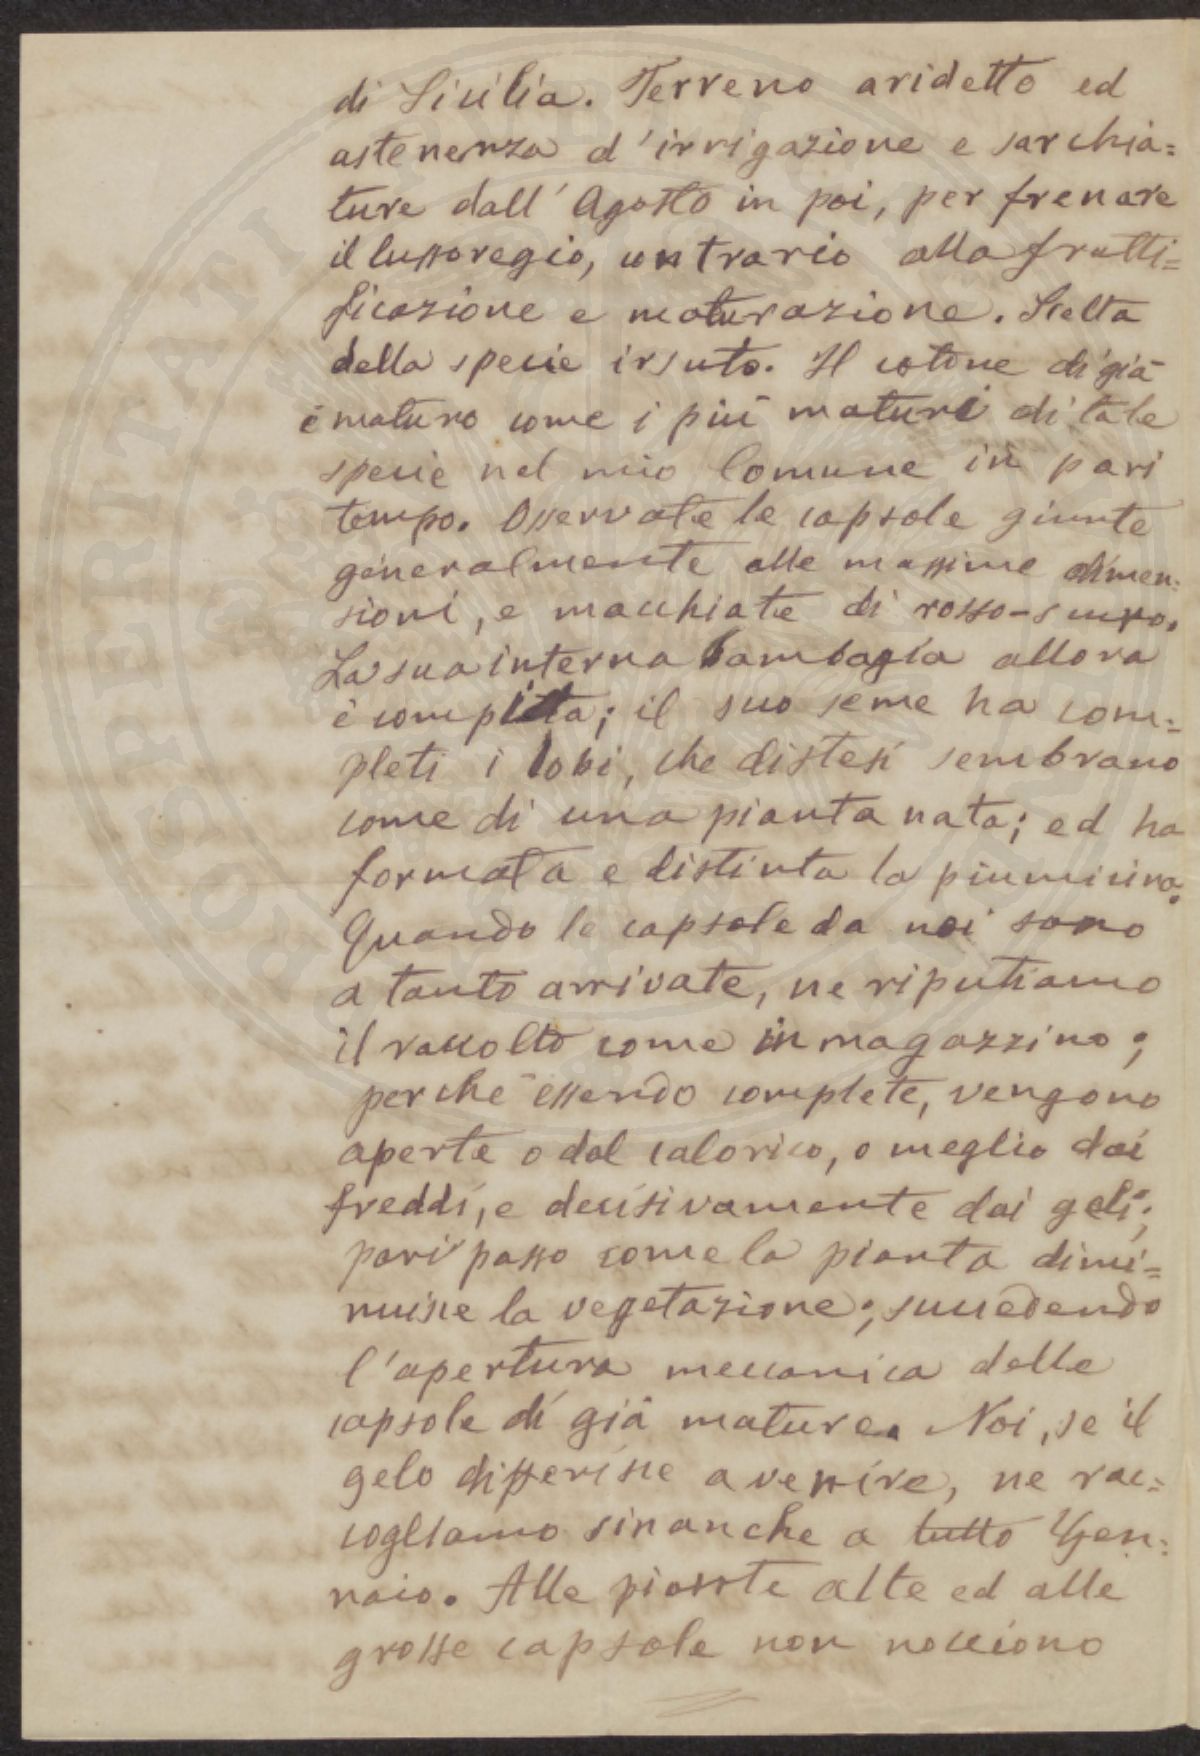 di Sicilia. Terreno aridetto ed
astenenza d'irrigazione e sarchia=
ture dall'Agosto in poi, per frenare
il lussoregio, contrario alla frutti=
ficazione e maturazione. Scelta
della specie irsuto. Il cotone di già
è maturo come i più maturi di tale
specie nel mio Comune in pari
tempo. Osservate le capsole giunte
generalmente alle massime dimen=
sioni, e macchiate di rosso-scuro.
La sua interna bambagia allora
è completa; il suo seme ha com=
pleti i lobi, che distesi sembrano
come di una pianta nata; ed ha
formata e distinta la piumicina.
Quando le capsole da noi sono
a tanto arrivate, ne riputiamo
il raccolto come in magazzino;
perchè essendo complete, vengono
aperte o dal calorico, o meglio dai
freddi, e decisivamente dai geli;
pari passo come la pianta dimi=
nuisce la vegetazione; succedendo
l'apertura meccanica delle
capsole di già mature. Noi, se il
gelo differisce a venire, ne rac=
cogliamo sinanche a tutto Gen=
naio. Alle piante alte ed alle
grosse capsole non nocciono
PROSPERITATI PVBLICAE